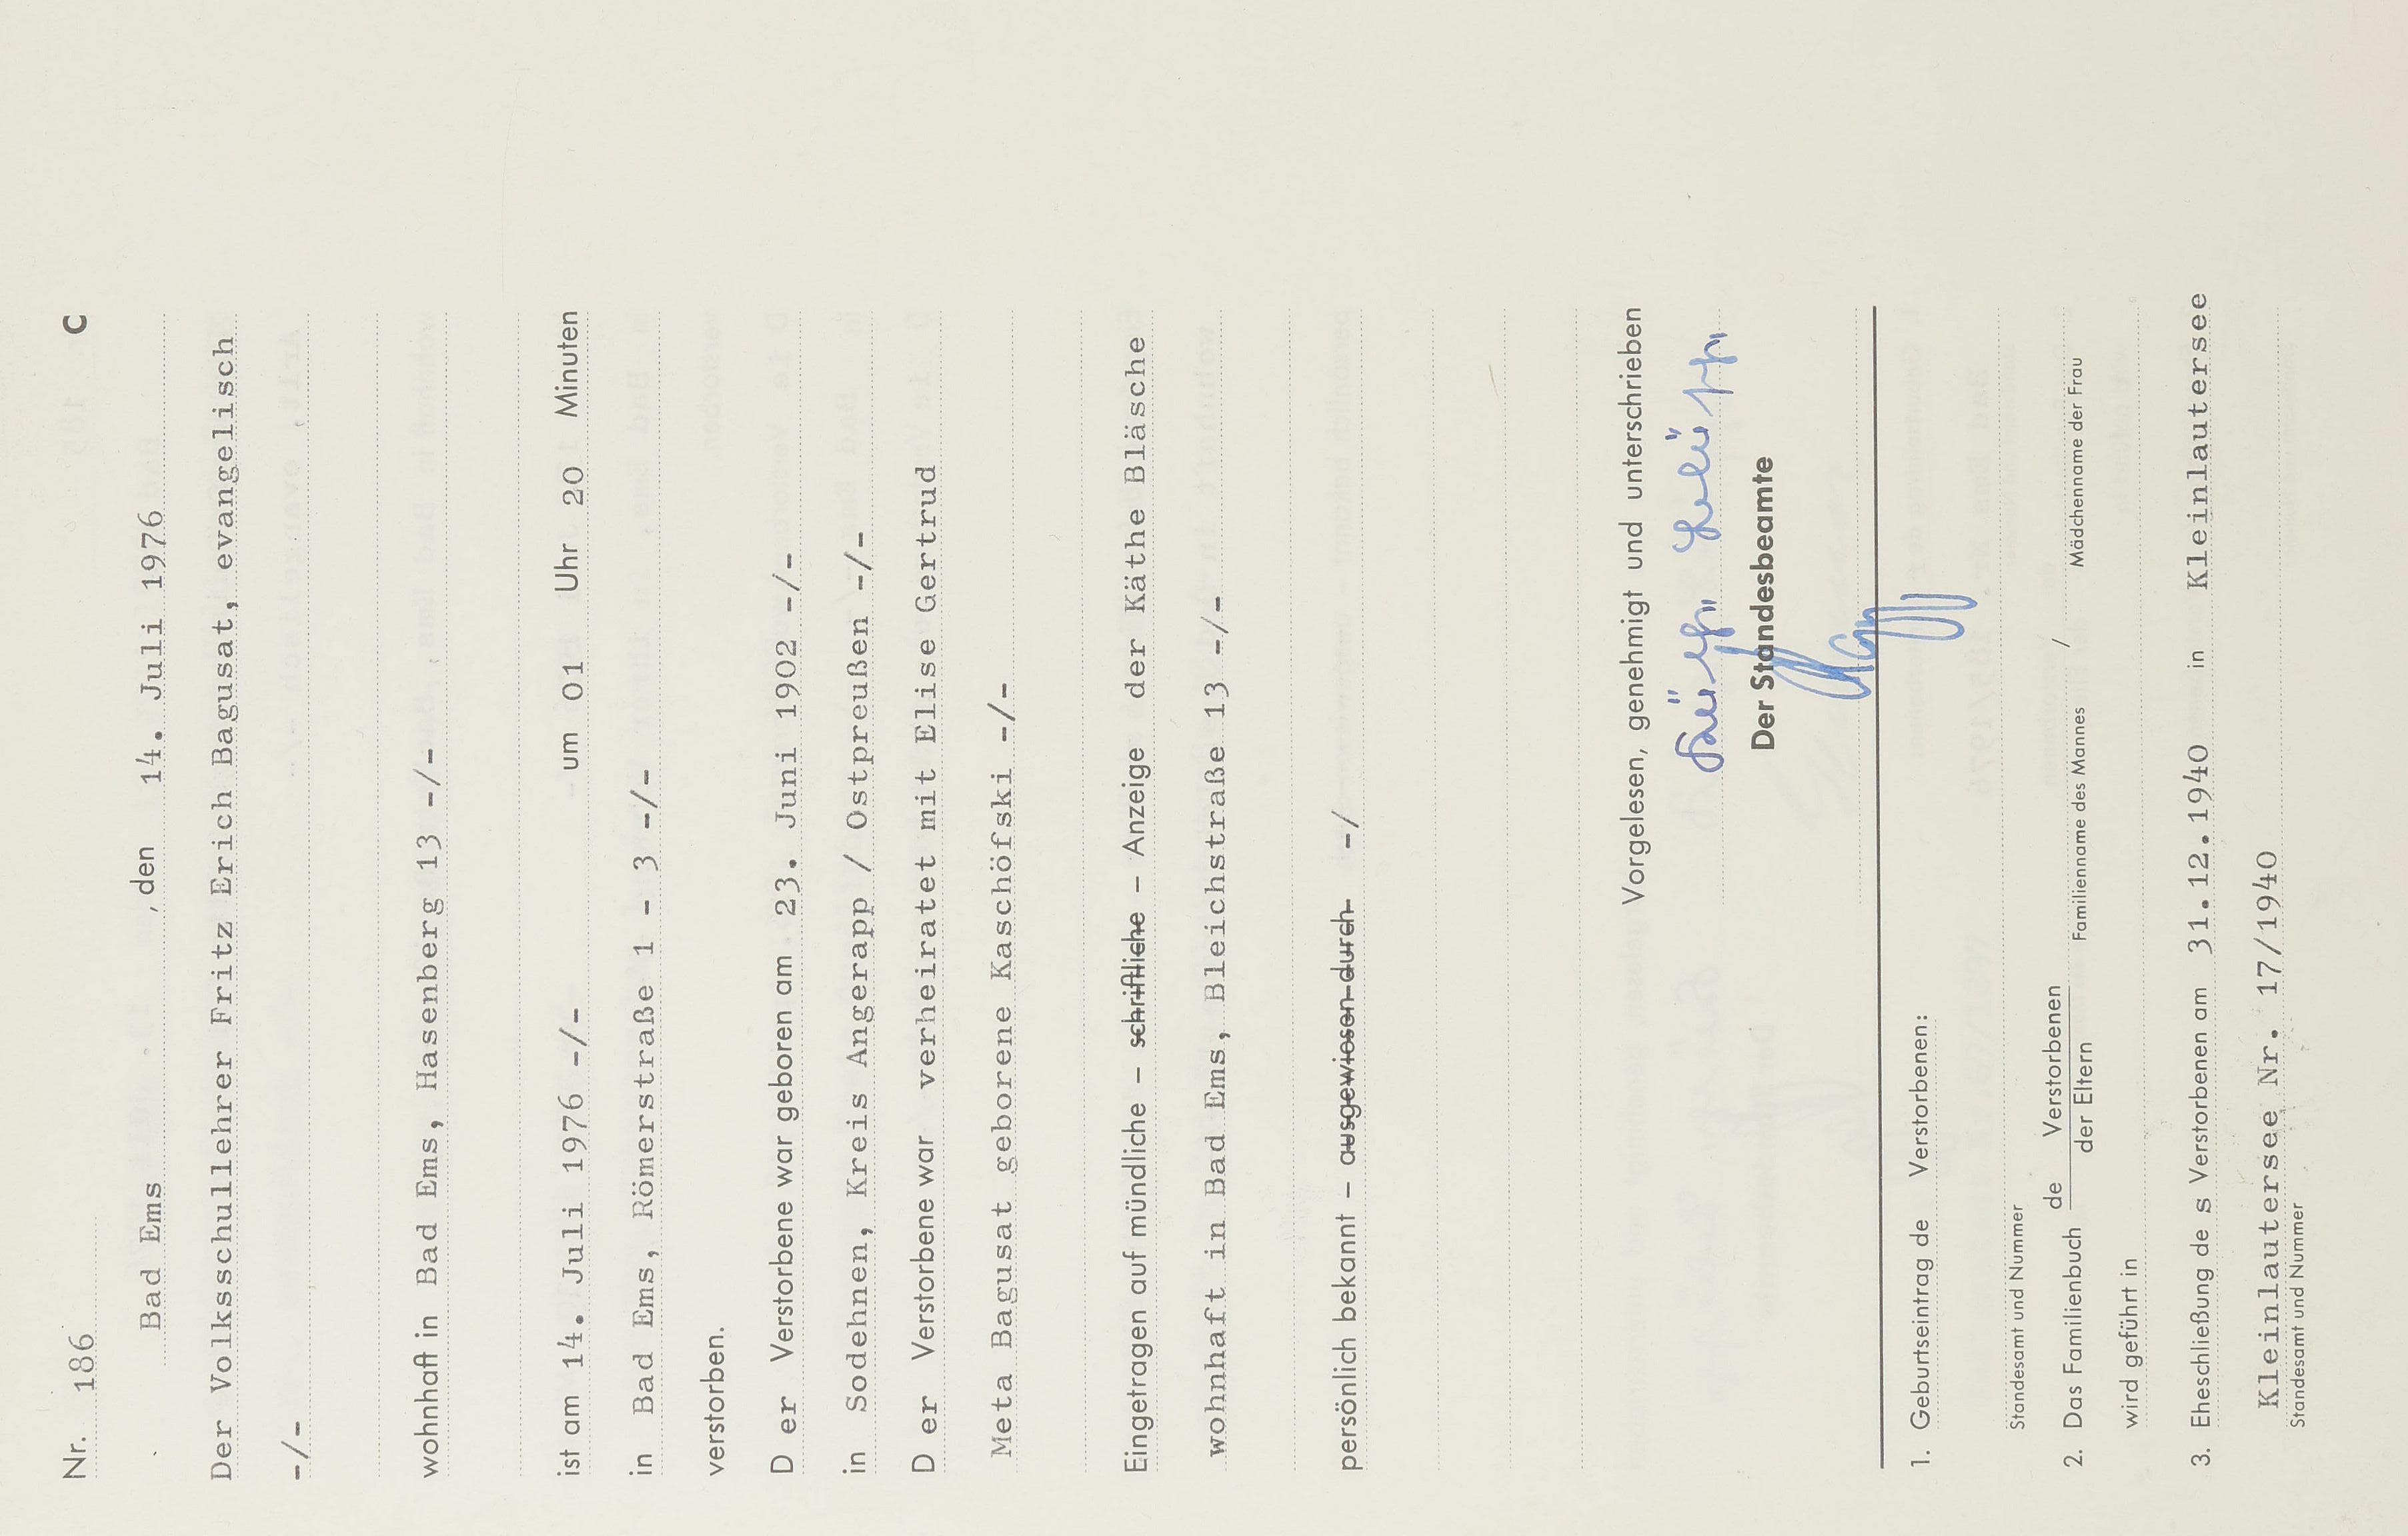 Nr. 186 C
Bad Ems , den 14. Juli 1976
Der Volksschullehrer Fritz Erich Bagusat, evangelisch
-/-
wohnhaft in Bad Ems, Hasenberg 13 -/-
ist am 14. Juli 1976 -/- um 01 Uhr 20 Minuten
in Bad Ems, Römerstraße 1 - 3 -/-
verstorben.
D er Verstorbene war geboren am 23. Juni 1902 -/-
in Sodehnen, Kreis Angerapp / Ostpreußen -/-
D er Verstorbene war verheiratet mit Elise Gertrud
Meta Bagusat geborene Kaschöfski -/-
Eingetragen auf mündliche – schriftliche – Anzeige der Käthe Bläsche
wohnhaft in Bad Ems, Bleichstraße 13 -/-
persönlich bekannt – ausgewiesen durch -/
Vorgelesen, genehmigt und unterschrieben
Der Standesbeamte
1. Geburtseintrag de Verstorbenen:
Standesamt und Nummer
2. Das Familienbuch de Verstorbenen
der Eltern Familienname des Mannes / Mädchenname der Frau
wird geführt in
3. Eheschließung de s Verstorbenen am 31.12.1940 in Kleinlautersee
Kleinlautersee Nr. 17/1940
Standesamt und Nummer